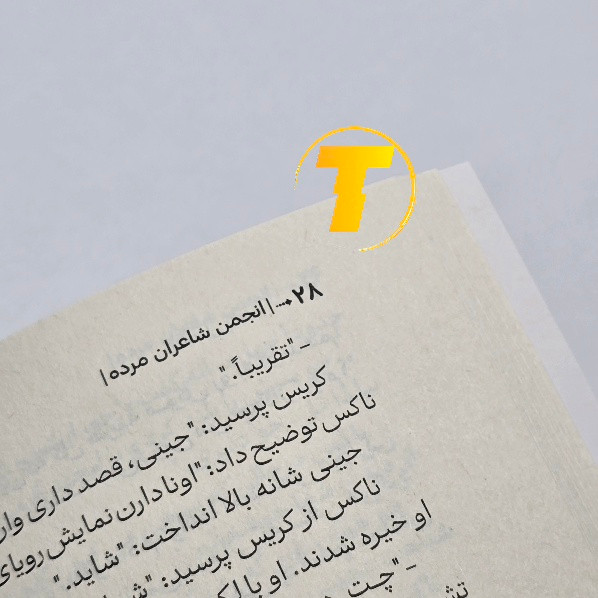 T
۲۸ ⇢ | انجمن شاعران مرده |
- "تقریباً."
کریس پرسید: "جینی، قصد داری
ناکس توضیح داد: "اونا دارن نمایش رویای
جینی شانه بالا انداخت: "شاید."
ناکس از کریس پرسید:
او خیره شدند. او با
- "چت